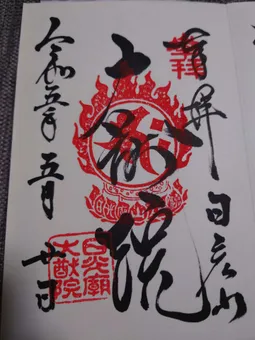 奉拝 日光山
大猷院
令和五年五月廿日
日光廟
大猷院